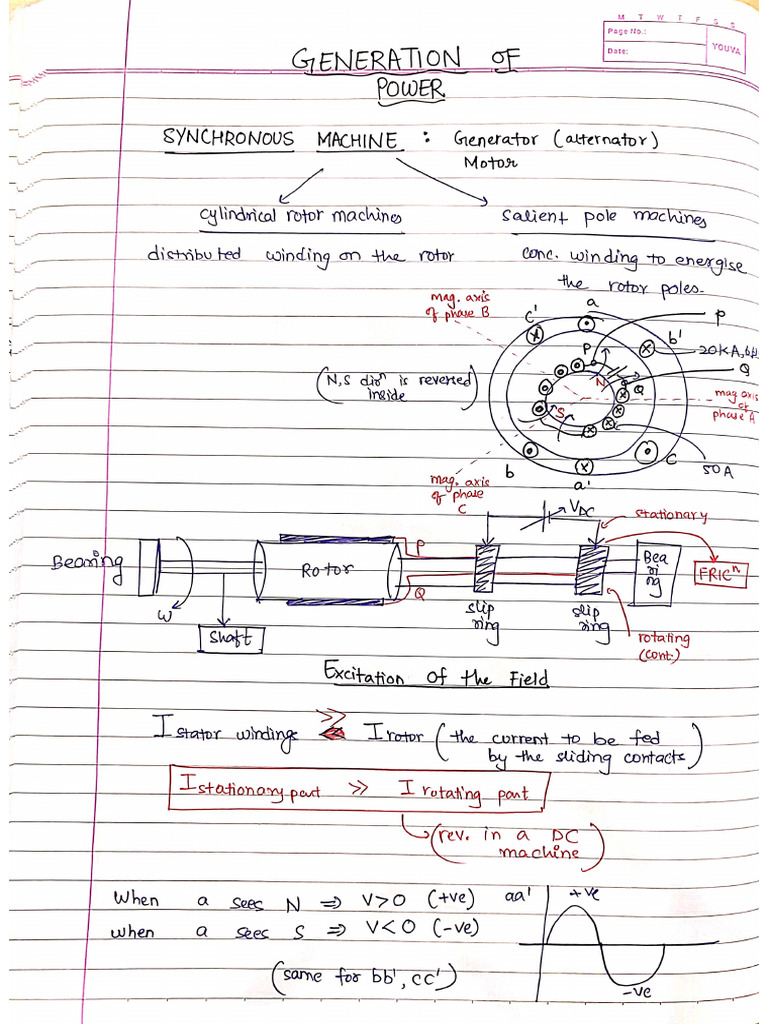 M T W T F S S
Page No.:
Date:
YOUVA
GENERATION OF
POWER
SYNCHRONOUS MACHINE : Generator (alternator)
Motor
cylindrical rotor machines
salient pole machines
distributed winding on the rotor
conc. winding to energise
the rotor poles.
mag. axis
of phase B
c'
a
b'
P
20KA,
P
N
Q
Q
(N,S dirⁿ is reversed
inside)
S
mag axis
of
phase A
b
a'
c
50A
mag. axis
of phase
C
VDC
stationary
Bearing
Rotor
P
Q
Bea
ri
ng
FRICⁿ
ω
shaft
slip
ring
slip
ring
rotating
(cont.)
Excitation of the Field
I stator windings >> I rotor (the current to be fed
by the sliding contacts)
I stationary part >> I rotating part
(rev. in a DC
machine)
When a sees N ⇒ V>0 (+ve)
aa'
+ve
when a sees S ⇒ V<0 (-ve)
(same for bb', cc')
-ve